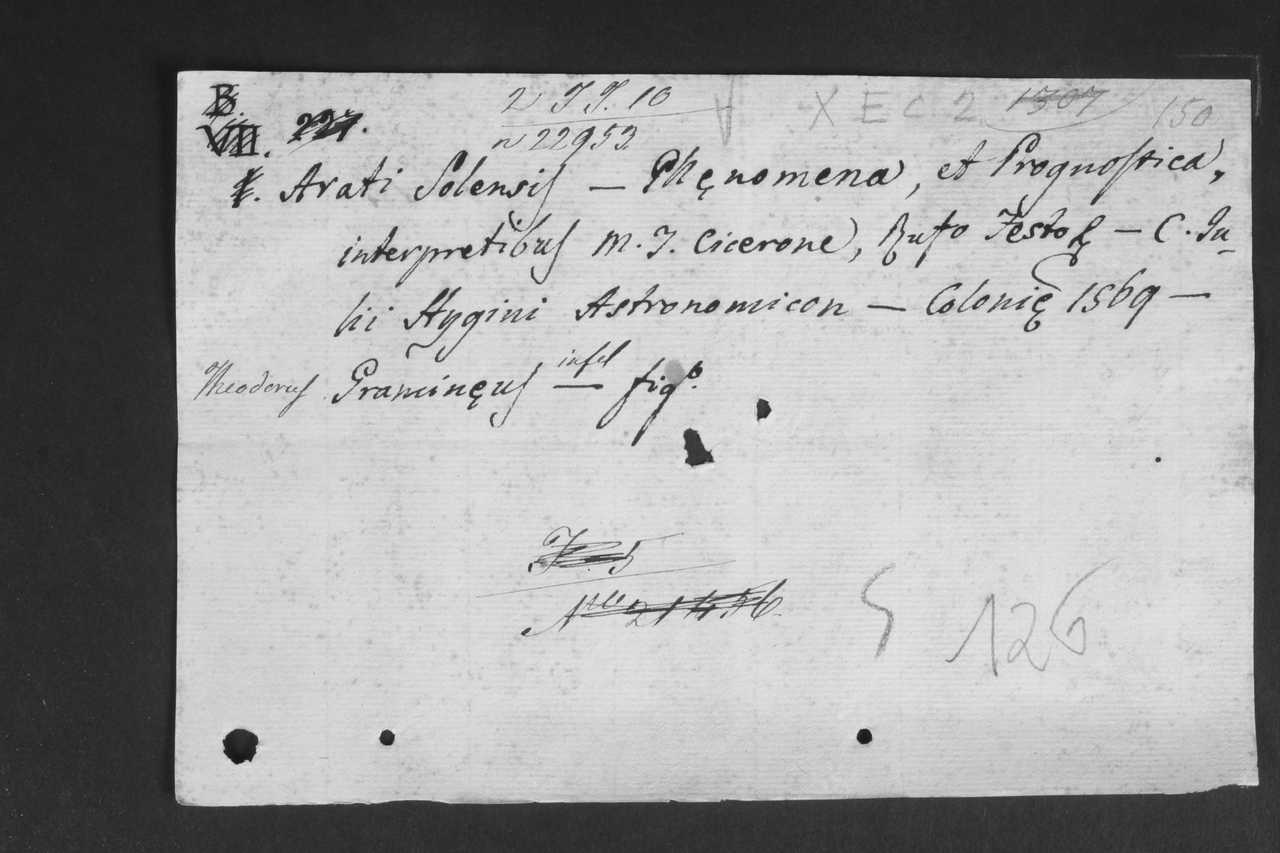 B.
VIII. 227. 2 J J. 10
n 22953
X E C 2 1307 150
Arati Solensis — Phęnomena, et Prognostica,
interpretibus M. T. Cicerone, Rufo Festo — C. Ju-
lii Hygini Astronomicon — Colonię 1569 —
Theodorus Graminęus — in fol fig.
5
N 21456
5 126